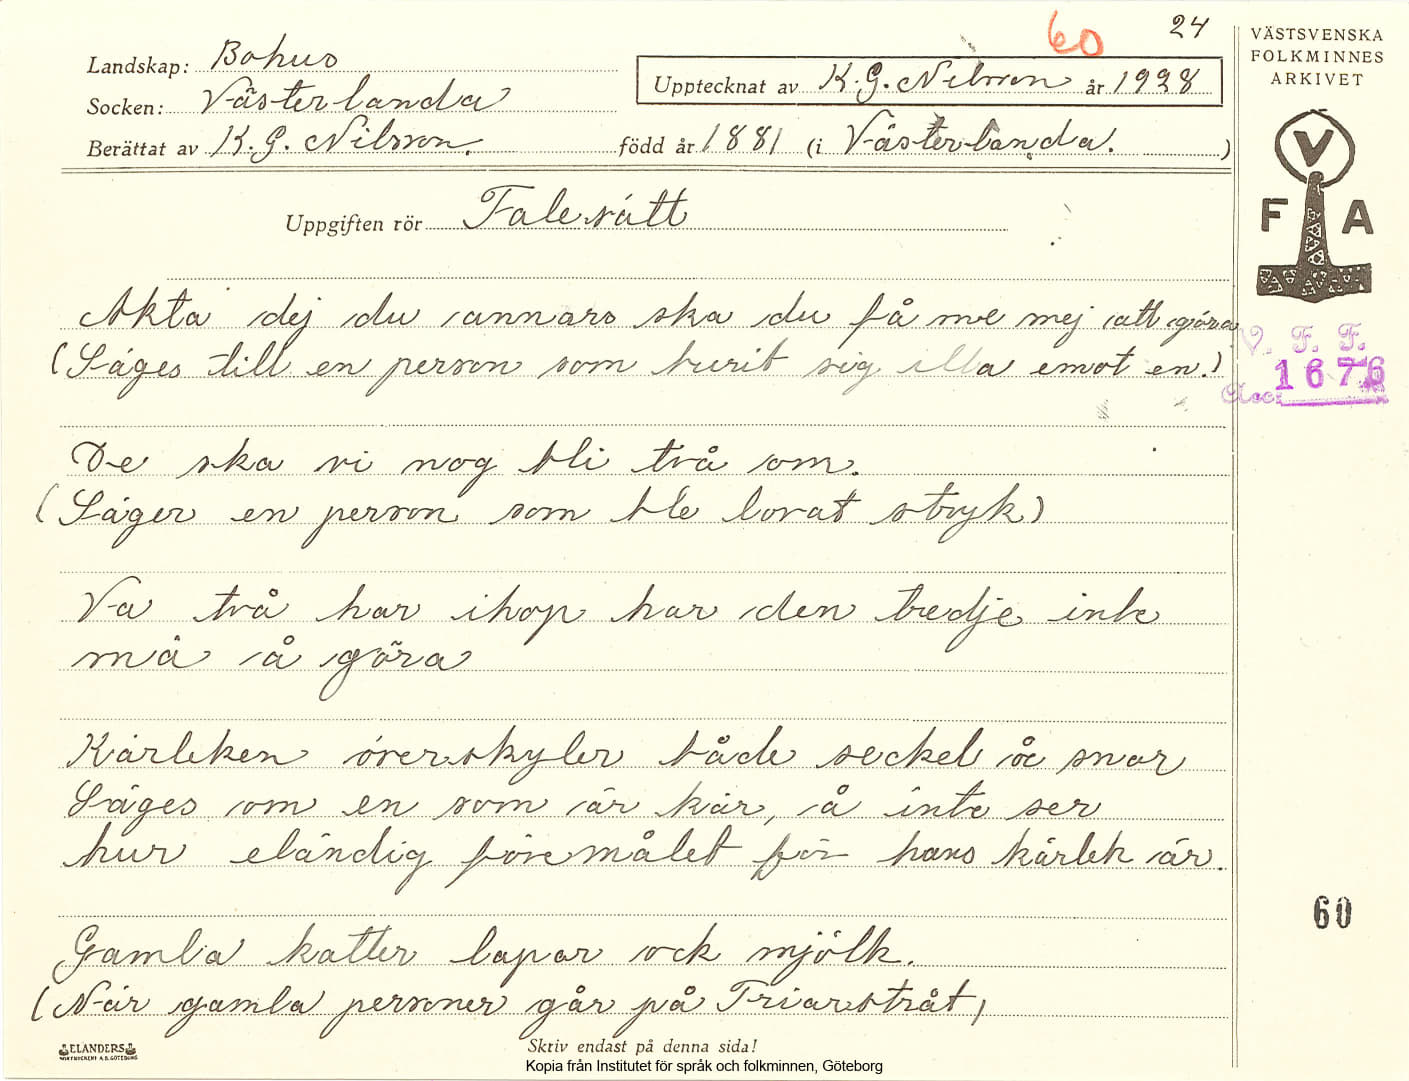 60 24
VÄSTSVENSKA
FOLKMINNES
ARKIVET
Landskap: Bohus
Upptecknat av K. G. Nilsson år 1928
Socken: Västerlanda
Berättat av K. G. Nilsson. född år 1881 (i Västerlanda. )
V
F A
Uppgiften rör Talesätt
Akta dej du annars ska du få me mej att göra
(Säges till en person som burit sig illa emot en.)
V. F. F.
1676
Acc:
De ska vi nog bli två om.
(Säger en person som ble lovat stryk)
Va två har ihop har den tredje inte
må å göra
Kärleken överskyler både seckel å snor
Säges om en som är kär, å inte ser
hur eländig föremålet för hans kärlek är.
60
Gamla katter lapar ock mjölk.
(När gamla personer går på Friarstråt)
ELANDERS
Skriv endast på denna sida!
Kopia från Institutet för språk och folkminnen, Göteborg